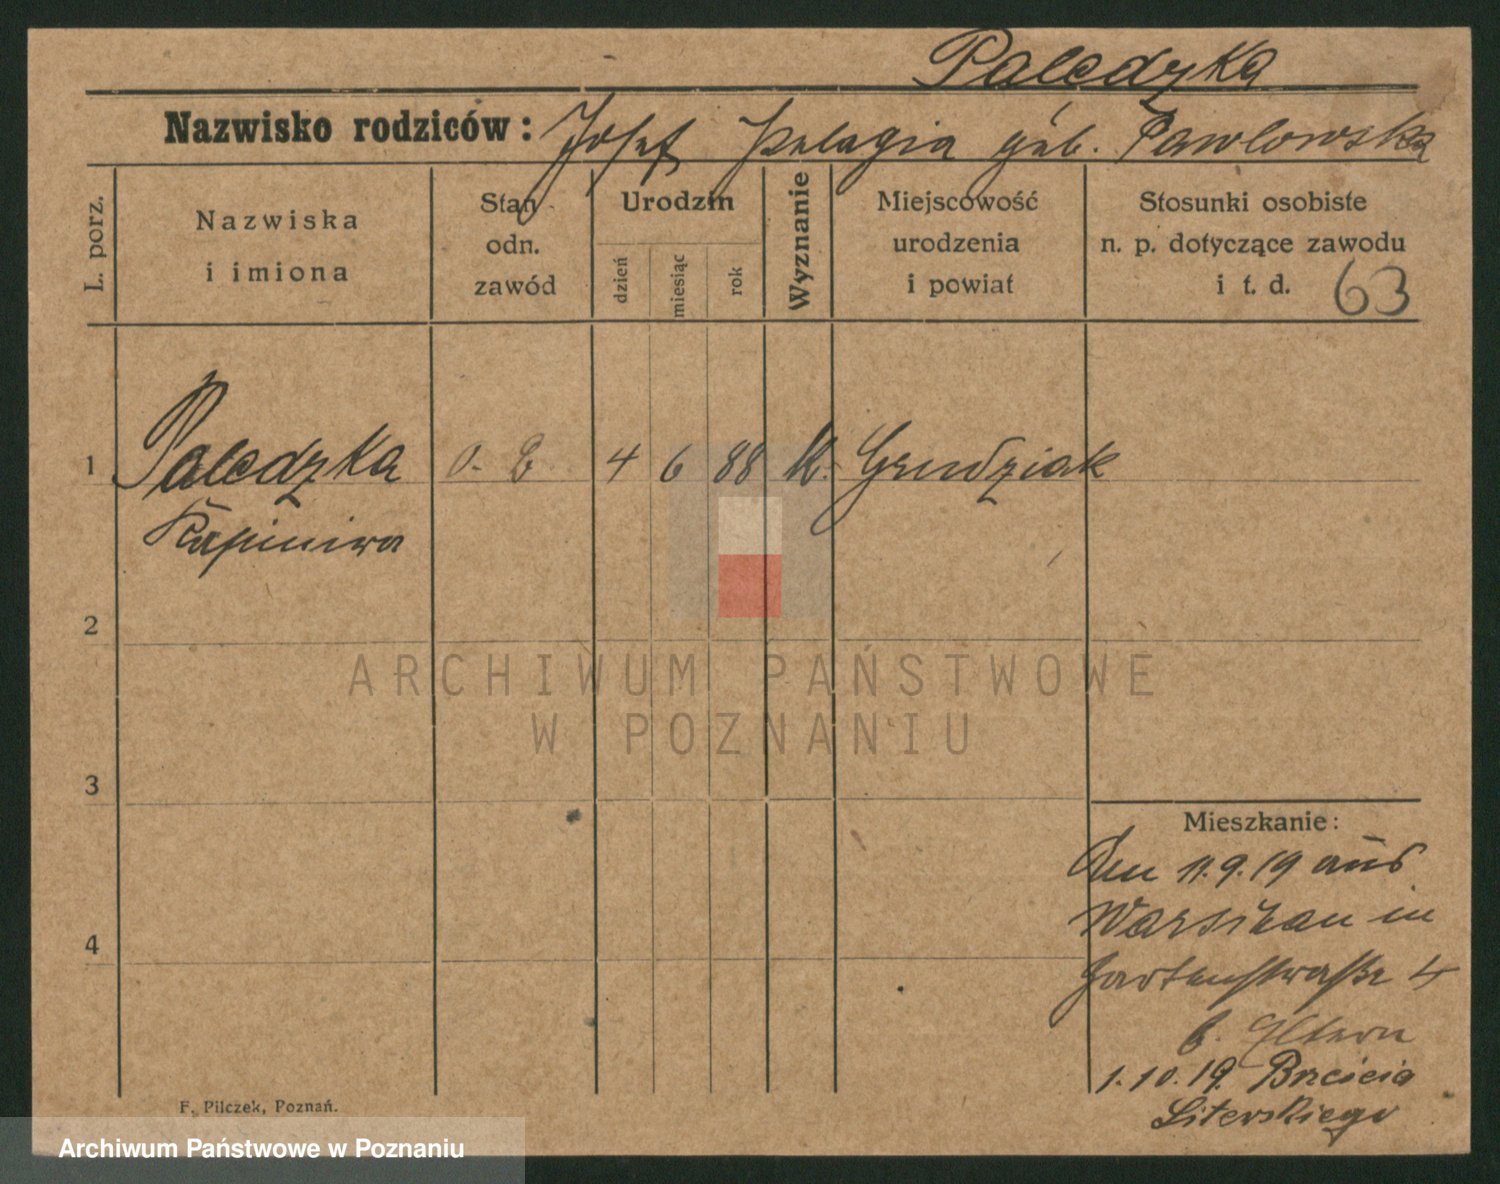 Paledzka
Nazwisko rodziców: Josef Pelagia geb. Pawlowska
L. porz.
Nazwiska
i imiona
Stan
odn.
zawód
Urodzin
dzień
miesiąc
rok
Wyznanie
Miejscowość
urodzenia
i powiat
Stosunki osobiste
n. p. dotyczące zawodu
i t. d. 63
1 Paledzka 4 6 88 K. Grudziak
2
3
4
Mieszkanie:
Den 11.9.19 aus
Warschau in
Gartenstraße 4
b. Eltern
1.10.19.
F. Pilczek, Poznań.
ARCHIWUM PAŃSTWOWE
W POZNANIU
Archiwum Państwowe w Poznaniu